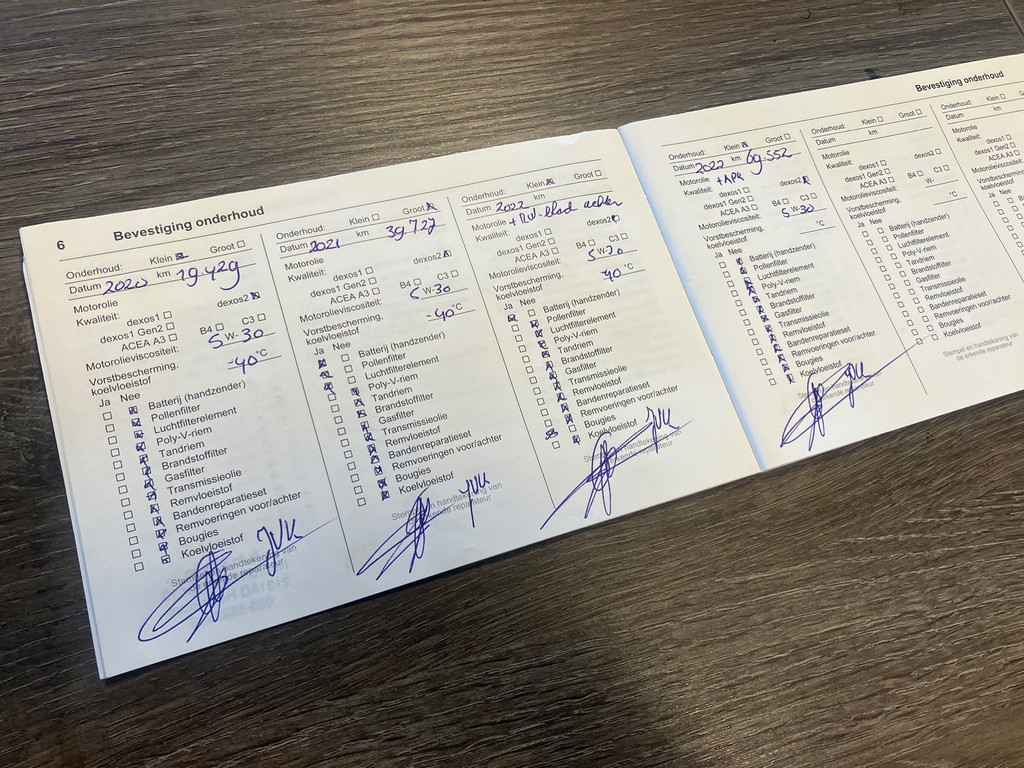 6 Bevestiging onderhoud
Onderhoud: Klein Groot
Datum 2020 km 19.429
Motorolie
Kwaliteit: dexos1 dexos2
dexos1 Gen2
ACEA A3 B4 C3
Motorolieviscositeit: 5 W-30
Vorstbescherming, koelvloeistof -40 °C
Ja Nee
Batterij (handzender)
Pollenfilter
Luchtfilterelement
Poly-V-riem
Tandriem
Brandstoffilter
Gasfilter
Transmissieolie
Remvloeistof
Bandenreparatieset
Remvoeringen voor/achter
Bougies
Koelvloeistof
Stempel en handtekening van
de erkende reparateur
Onderhoud: Klein Groot
Datum 2021 km 39.727
Motorolie
Kwaliteit: dexos1 dexos2
dexos1 Gen2
ACEA A3 B4 C3
Motorolieviscositeit: 5 W-30
Vorstbescherming, koelvloeistof -40 °C
Ja Nee
Batterij (handzender)
Pollenfilter
Luchtfilterelement
Poly-V-riem
Tandriem
Brandstoffilter
Gasfilter
Transmissieolie
Remvloeistof
Bandenreparatieset
Remvoeringen voor/achter
Bougies
Koelvloeistof
Stempel en handtekening van
de erkende reparateur
Onderhoud: Klein Groot
Datum 2022 km
Motorolie
Kwaliteit: dexos1 dexos2
dexos1 Gen2
ACEA A3 B4 C3
Motorolieviscositeit: 5 W-30
Vorstbescherming, koelvloeistof -40 °C
Ja Nee
Batterij (handzender)
Pollenfilter
Luchtfilterelement
Poly-V-riem
Tandriem
Brandstoffilter
Gasfilter
Transmissieolie
Remvloeistof
Bandenreparatieset
Remvoeringen voor/achter
Bougies
Koelvloeistof
Stempel en handtekening van
de erkende reparateur
Bevestiging onderhoud
Onderhoud: Klein Groot
Datum 2022 km 69.552
Motorolie +APK
Kwaliteit: dexos1 dexos2
dexos1 Gen2
ACEA A3 B4 C3
Motorolieviscositeit: 5 W-30
Vorstbescherming, koelvloeistof °C
Ja Nee
Batterij (handzender)
Pollenfilter
Luchtfilterelement
Poly-V-riem
Tandriem
Brandstoffilter
Gasfilter
Transmissieolie
Remvloeistof
Bandenreparatieset
Remvoeringen voor/achter
Bougies
Koelvloeistof
Stempel en handtekening van
de erkende reparateur
Onderhoud: Klein Groot
Datum km
Motorolie
Kwaliteit: dexos1 dexos2
dexos1 Gen2
ACEA A3 B4 C3
Motorolieviscositeit: W-
Vorstbescherming, koelvloeistof °C
Ja Nee
Batterij (handzender)
Pollenfilter
Luchtfilterelement
Poly-V-riem
Tandriem
Brandstoffilter
Gasfilter
Transmissieolie
Remvloeistof
Bandenreparatieset
Remvoeringen voor/achter
Bougies
Koelvloeistof
Stempel en handtekening van
de erkende reparateur
Onderhoud: Klein
Datum km
Motorolie
Kwaliteit: dexos1
dexos1 Gen2
ACEA A3
Motorolieviscositeit:
Vorstbescherming, koelvloeistof
Ja Nee